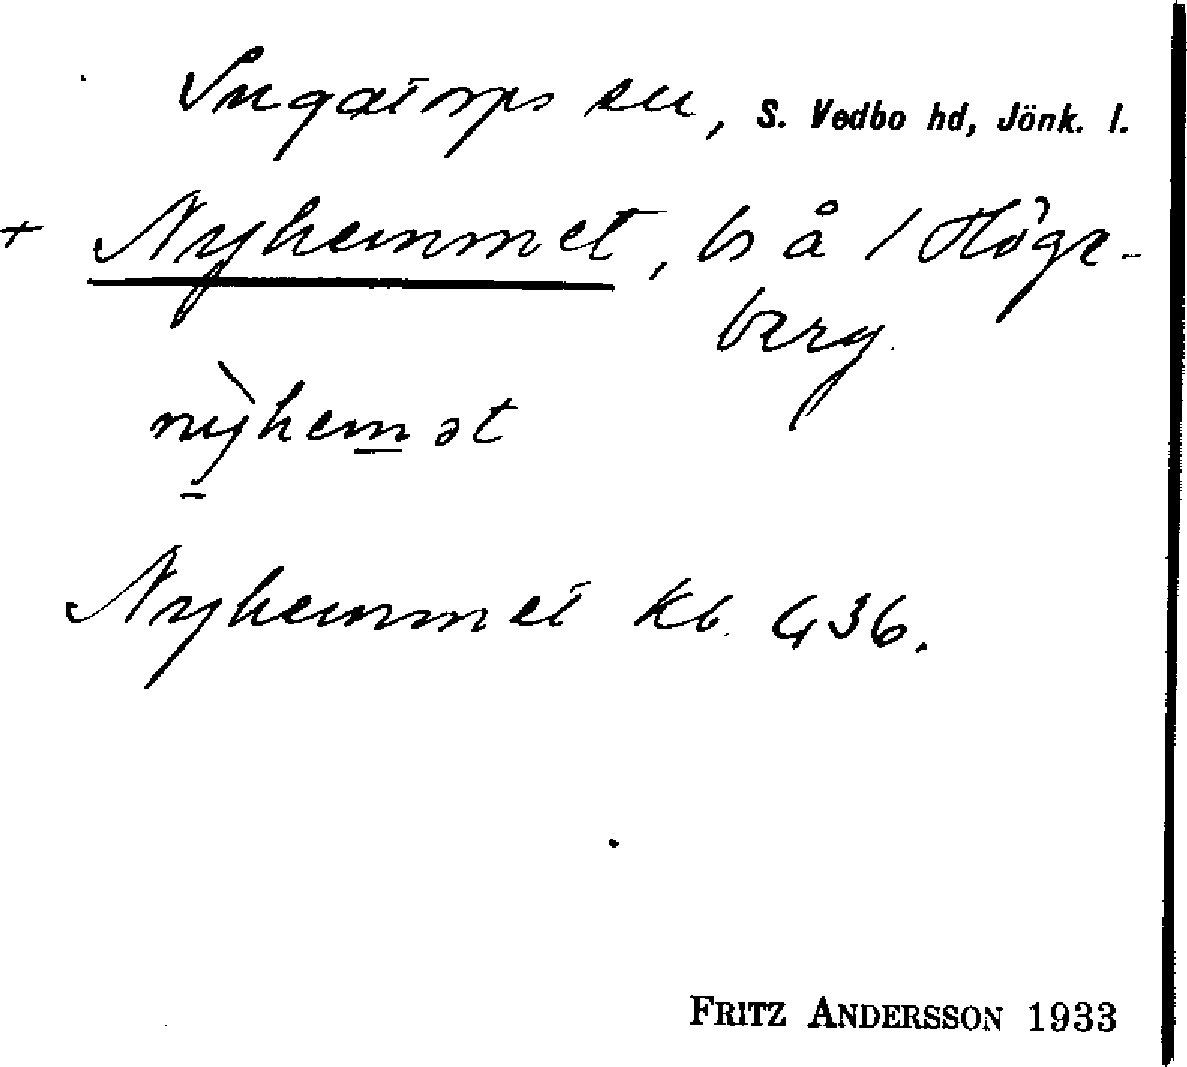 Ingatorps sn, S. Vedbo hd, Jönk. l.
+ Nyhemmet, bs å 1 Höge-
berg.
nỳhemət
Nyhemmet kb. 436.
FRITZ ANDERSSON 1933